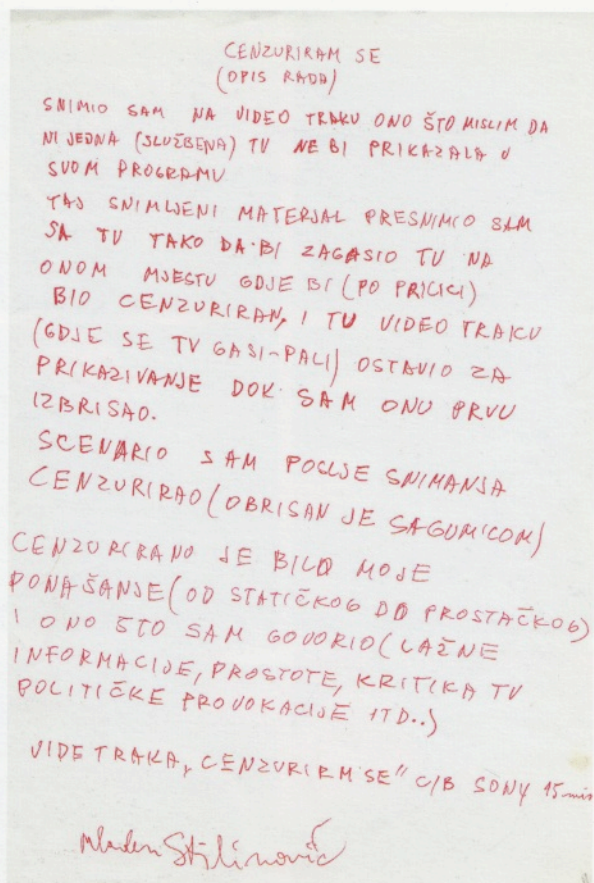 CENZURIRAM SE
(OPIS RADA)
SNIMIO SAM NA VIDEO TRAKU ONO ŠTO MISLIM DA
NI JEDNA (SLUŽBENA) TV NE BI PRIKAZALA U
SVOM PROGRAMU
TAJ SNIMLJENI MATERJAL PRESNIMIO SAM
SA TV TAKO DA BI ZAGASIO TV NA
ONOM MJESTU GDJE BI (PO PRICICI)
BIO CENZURIRAN, I TU VIDEO TRAKU
(GDJE SE TV GASI-PALI) OSTAVIO ZA
PRIKAZIVANJE DOK SAM ONU PRVU
IZBRISAO.
SCENARIO SAM POSLJE SNIMANJA
CENZURIRAO (OBRISAN JE SA GUMICOM)
CENZURIRANO JE BILO MOJE
PONAŠANJE (OD STATIČKOG DO PROSTAČKOG)
I ONO ŠTO SAM GOVORIO (LAŽNE
INFORMACIJE, PROSTOTE, KRITIKA TV
POLITIČKE PROVOKACIJE ITD..)
VIDE TRAKA „CENZURIRM SE" C/B SONY 15 min
Mladen Stilinović